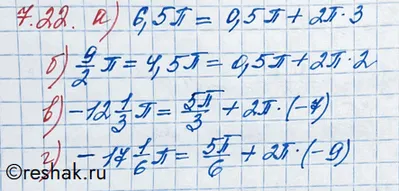 7.22. а) 6,5π = 0,5π + 2π·3
б) 9/2 π = 4,5π = 0,5π + 2π·2
в) -12 1/3 π = 5π/3 + 2π·(-7)
г) -17 1/6 π = 5π/6 + 2π·(-9)
©reshak.ru